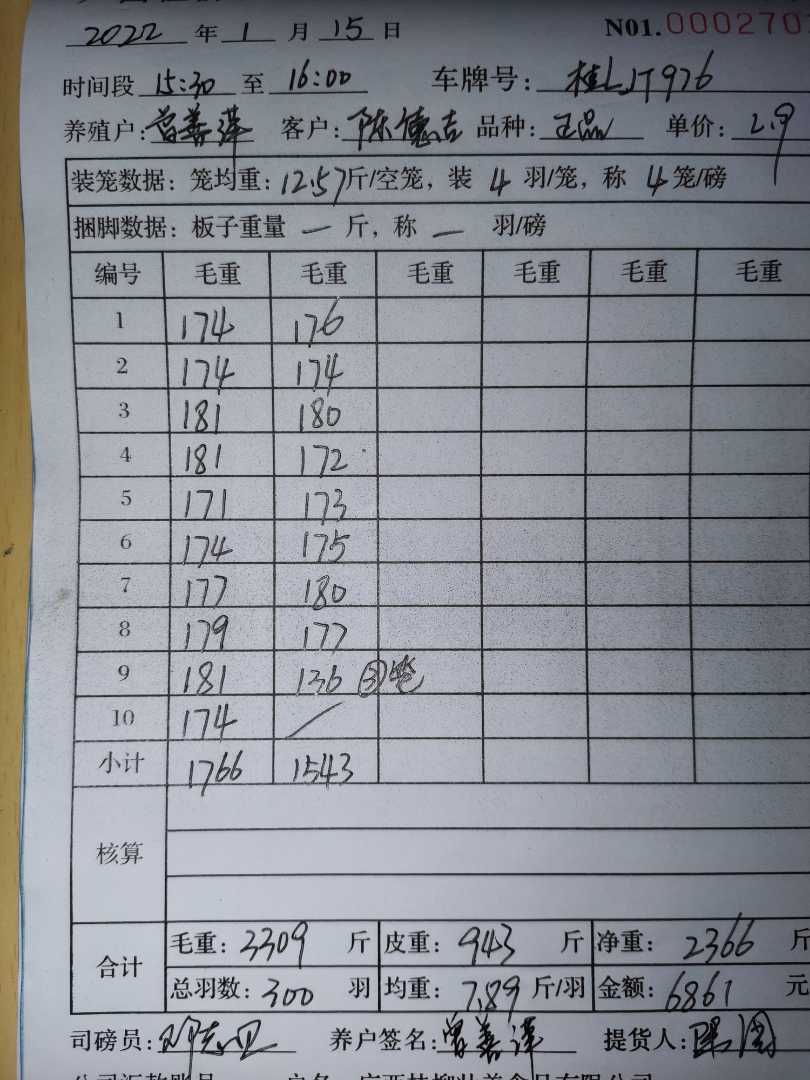 2022 年 1 月 15 日 N01.000270
时间段 15:30 至 16:00 车牌号: 桂LJT976
养殖户: 曾善莲 客户: 陈德吉 品种: 王品 单价: 2.9
装笼数据: 笼均重: 12.57斤/空笼, 装 4 羽/笼, 称 4 笼/磅
捆脚数据: 板子重量 一 斤, 称 一 羽/磅
编号 毛重 毛重 毛重 毛重 毛重 毛重
1 174 176
2 174 174
3 181 180
4 181 172
5 171 173
6 174 175
7 177 180
8 179 177
9 181 136 ③笼
10 174 /
小计 1766 1543
核算
合计 毛重: 3309 斤 皮重: 943 斤 净重: 2366 斤
总羽数: 300 羽 均重: 7.89 斤/羽 金额: 6861 元
司磅员: 养户签名: 曾善莲 提货人: